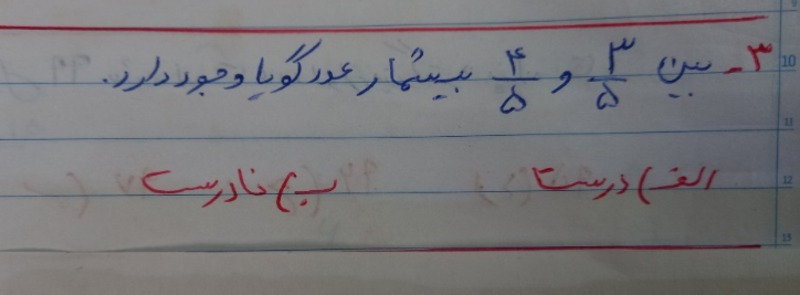 ۳- بین ۳/۵ و ۴/۵ بیشمار عدد گویا وجود دارد.
الف) درست ب) نادرست
10
11
12
13